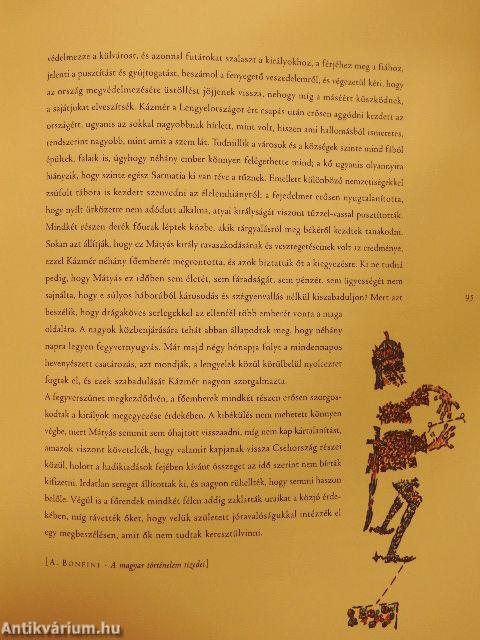 védelmezze a külvárost, és azonnal futárokat szalaszt a királyokhoz, a férjéhez meg a fiához,
jelenti a pusztítást és gyújtogatást, beszámol a fenyegető veszedelemről, és végezetül kéri, hogy
az ország megvédelmezésére üstöllést jöjjenek vissza, nehogy míg a máséért küszködnek,
a sajátjukat elveszítsék. Kázmér a Lengyelországot ért csapás után erősen aggódni kezdett az
országért, ugyanis az sokkal nagyobbnak hírlett, mint volt, hiszen ami hallomásból ismeretes,
rendszerint nagyobb, mint amit a szem lát. Tudniillik a városok és a községek szinte mind fából
épültek, falaik is, úgyhogy néhány ember könnyen felégerhette mind; a kő ugyanis olyannyira
hiányzik, hogy szinte egész Sarmatia ki van téve a tűznek. Emellett különböző nemzetiségekkel
zsúfolt tábora is kezdett szenvedni az élelemhiánytól; a fejedelmet erősen nyugtalanította,
hogy nyílt ütközetre nem adódott alkalma, atyai királyságát viszont tűzzel-vassal pusztították.
Mindkét részen derék főurak léptek közbe, akik tárgyalásról meg békéről kezdtek tanakodni.
Sokan azt állítják, hogy ez Mátyás király ravaszkodásának és vesztegetéseinek volt az eredménye,
ezzel Kázmér néhány főemberét megrontotta, és azok biztatták őt a kiegyezésre. Ki ne tudná
pedig, hogy Mátyás ez időben sem életét, sem fáradságát, sem pénzét, sem ügyességét nem
sajnálta, hogy e súlyos háborúból károsodás és szégyenvallás nélkül kiszabaduljon? Mert azt
beszélik, hogy drágaköves serlegekkel az ellenfél több emberét vonta a maga
oldalára. A nagyok közbenjárására tehát abban állapodtak meg, hogy néhány
napra legyen fegyvernyugvás. Már majd négy hónapja folyt a mindennapos
hevenyészett csatározás, azt mondják, a lengyelek közül körülbelül nyolcezret
fogtak el, és ezek szabadulását Kázmér nagyon szorgalmazta.
A fegyverszünet megkezdődvén, a főemberek mindkét részen erősen szorgos-
kodtak a királyok megegyezése érdekében. A kibékülés nem mehetett könnyen
végbe, mert Mátyás semmit sem óhajtott visszaadni, míg nem kap kártalanítást,
amazok viszont követelték, hogy valamit kapjanak vissza Csehország részei
közül, holott a hadikiadások fejében kívánt összeget az idő szerint nem bírták
kifizetni. Irdatlan sereget állítottak ki, és nagyon rühellték, hogy semmi haszon
belőle. Végül is a főrendek mindkét félen addig zaklatták uraikat a közjó érde-
kében, míg rávették őket, hogy velük született jóravalóságukkal intézzék el
egy megbeszélésen, amit ők nem tudtak keresztülvinni.
[A. Bonfini - A magyar történelem tizedei]
95
Antikvárium.hu